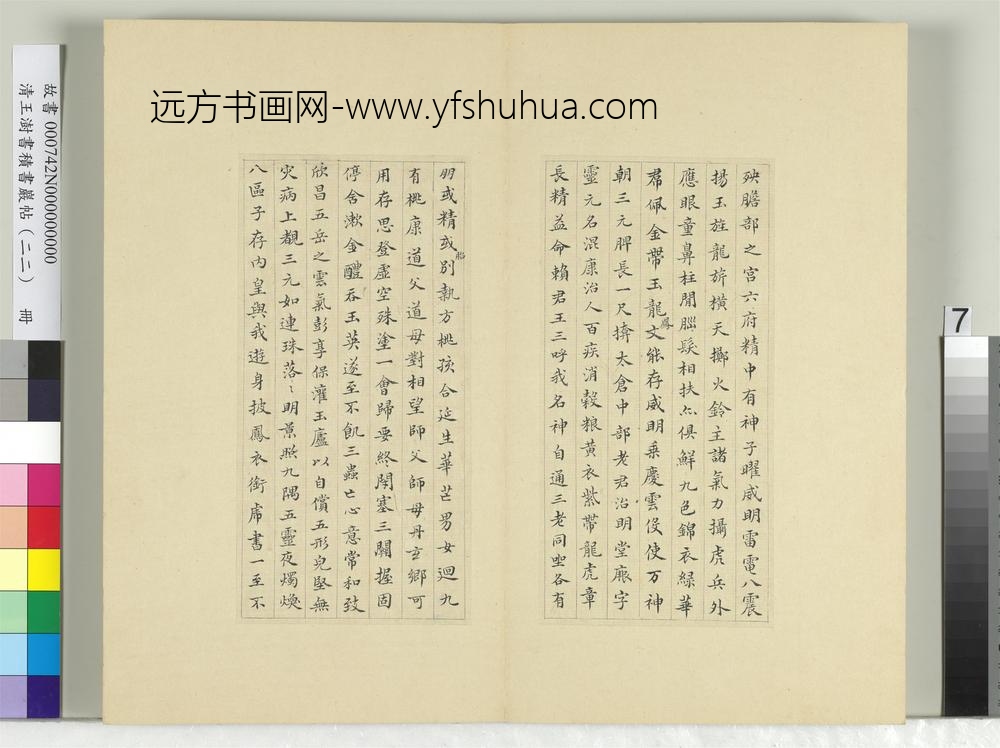 远方书画网-www.yfshuhua.com
故書 000742N000000000
清王澍書積書巖帖(二二) 冊
7
殃膽部之宮六府精中有神子曜威明雷電八震
揚玉旌龍旂橫天擲火鈴主諸氣力攝虎兵外
應眼童鼻柱間腦髮相扶亦俱鮮九色錦衣綠華
帬佩金帶玉龍文能存威明乘慶雲役使万神
鳳
朝三元脾長一尺掩太倉中部老君治明堂厥字
靈元名混康治人百疾消穀粮黃衣紫帶龍虎章
長精益命賴君王三呼我名神自通三老同坐各有
朋或精或别執方桃孩合延生華芒男女迴九
胎
有桃康道父道母對相望師父師母丹玄鄉可
用存思登虛空殊塗一會歸要終閉塞三關握固
停含漱金醴吞玉英遂至不飢三蟲亡心意常和致
欣昌五岳之雲氣彭亨保灌玉廬以自償五形完堅無
灾病上覩三元如連珠落〻明景照九隅五靈夜燭煥
八區子存內皇與我遊身披鳳衣銜虎書一至不